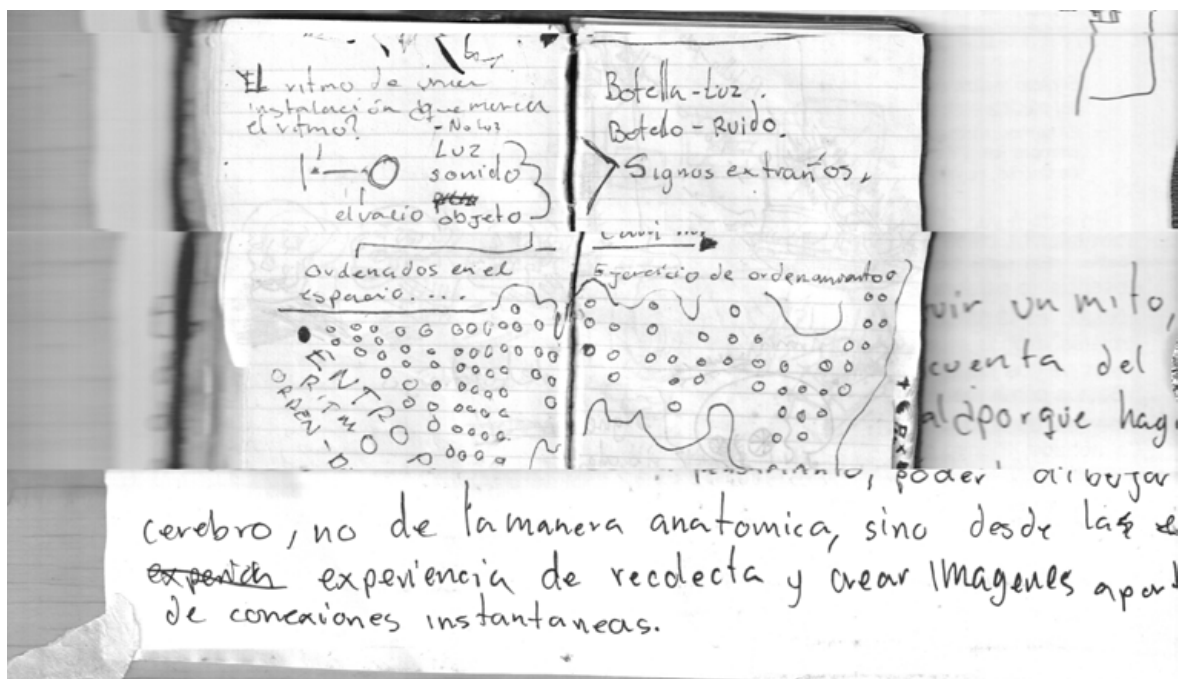 El ritmo de una
instalación ¿que marca
el ritmo?
- No luz
Luz
sonido
el vacio objeto
Botella-Luz.
Botello-Ruido.
Signos extraños.
ordenados en el
espacio....
ENTRO
RITMO
ORDEN-
Ejercicio de ordenamiento
un mito,
cuenta del
¿porque
poder dibujar
cerebro, no de la manera anatomica, sino desde las
experiencia de recolecta y crear imagenes
de conexiones instantaneas.